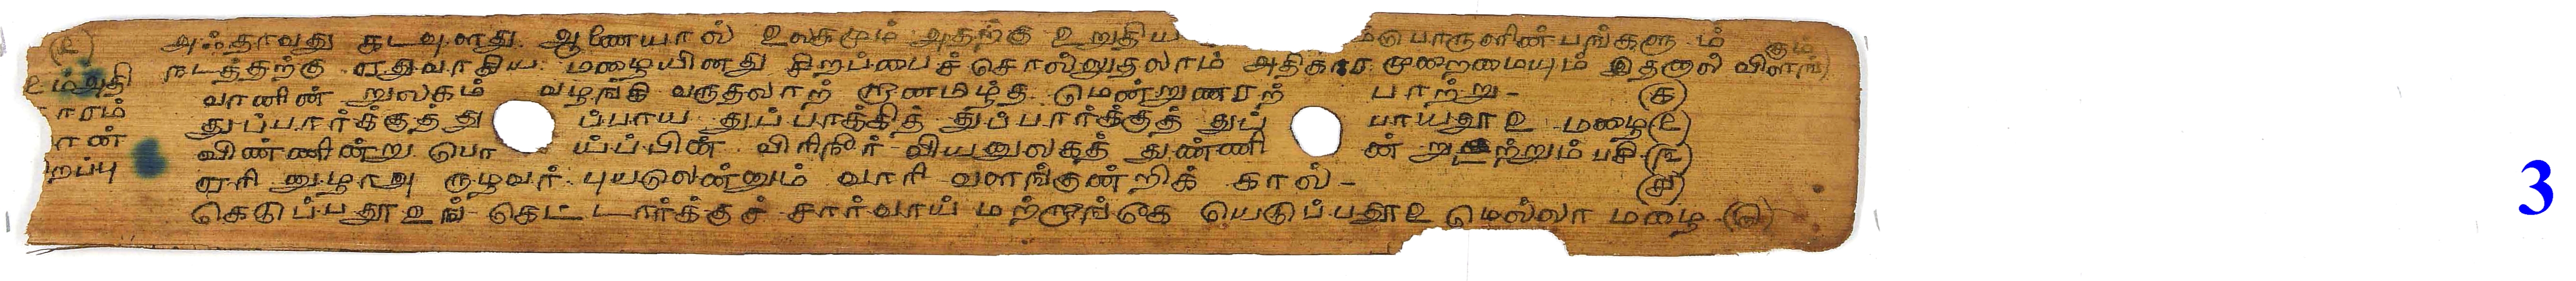 (௨) அஃதாவது கடவுளது ஆணையால் உலகமும் அதற்கு உறுதிய ம்பொருளின்பங்களும்
உம்அதி நடத்தற்கு ஏதுவாகிய மழையினது சிறப்பைச் சொல்லுதலாம் அதிகார முறைமையும் இதனால் விளங்கும்
ாரம் வானின் றுலகம் வழங்கி வருதலாற் றானமிழ்த மென்றுணரற் பாற்று- (௧)
ான் துப்பார்க்குத் து ப்பாய துப்பாக்கித் துப்பார்க்குத் துப் பாயதூஉ மழை (௨)
விண்ணின்று பொ ய்ப்பின் விரிநீர் வியனுலகத் துண்ணி ன் றுடற்றும் பசி (௩)
ிறப்பு ஏரி னுழாஅ ருழவர் புயலென்னும் வாரி வளங்குன்றிக் கால்- (௪)
கெடுப்பதூஉங் கெட்டார்க்குச் சார்வாய் மற்றாங்கே யெடுப்பதூஉ மெல்லா மழை (௫)
3